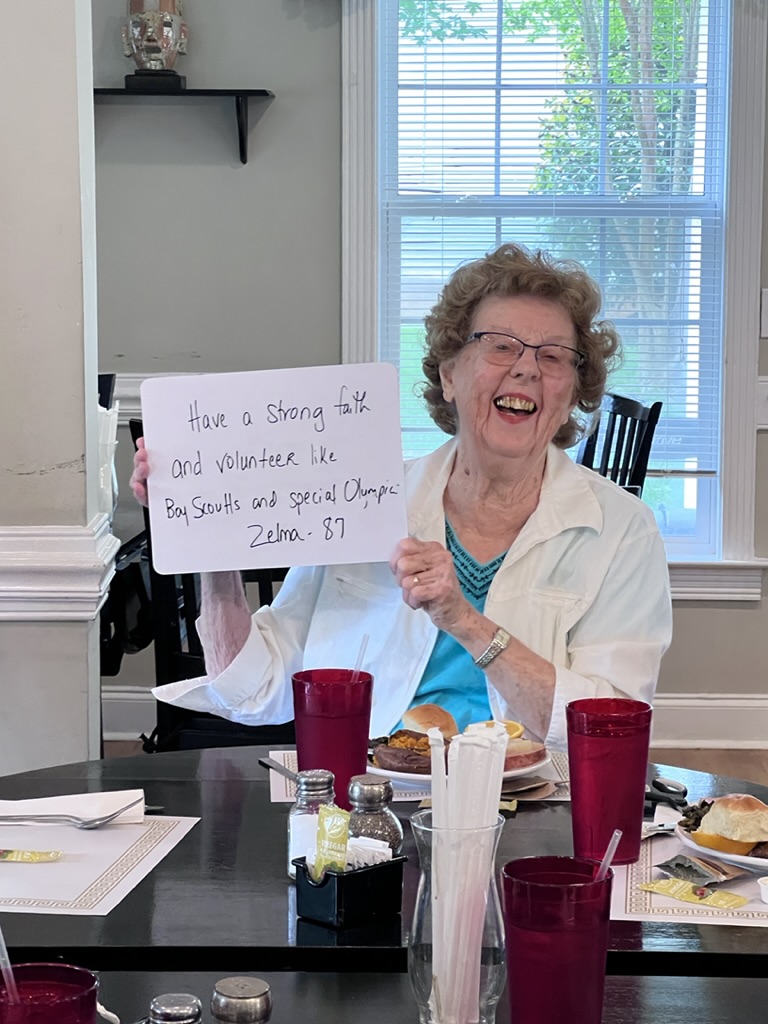 Have a strong faith
and volunteer like
Boy Scoutts and special Olympic-
Zelma - 87
VINEGAR